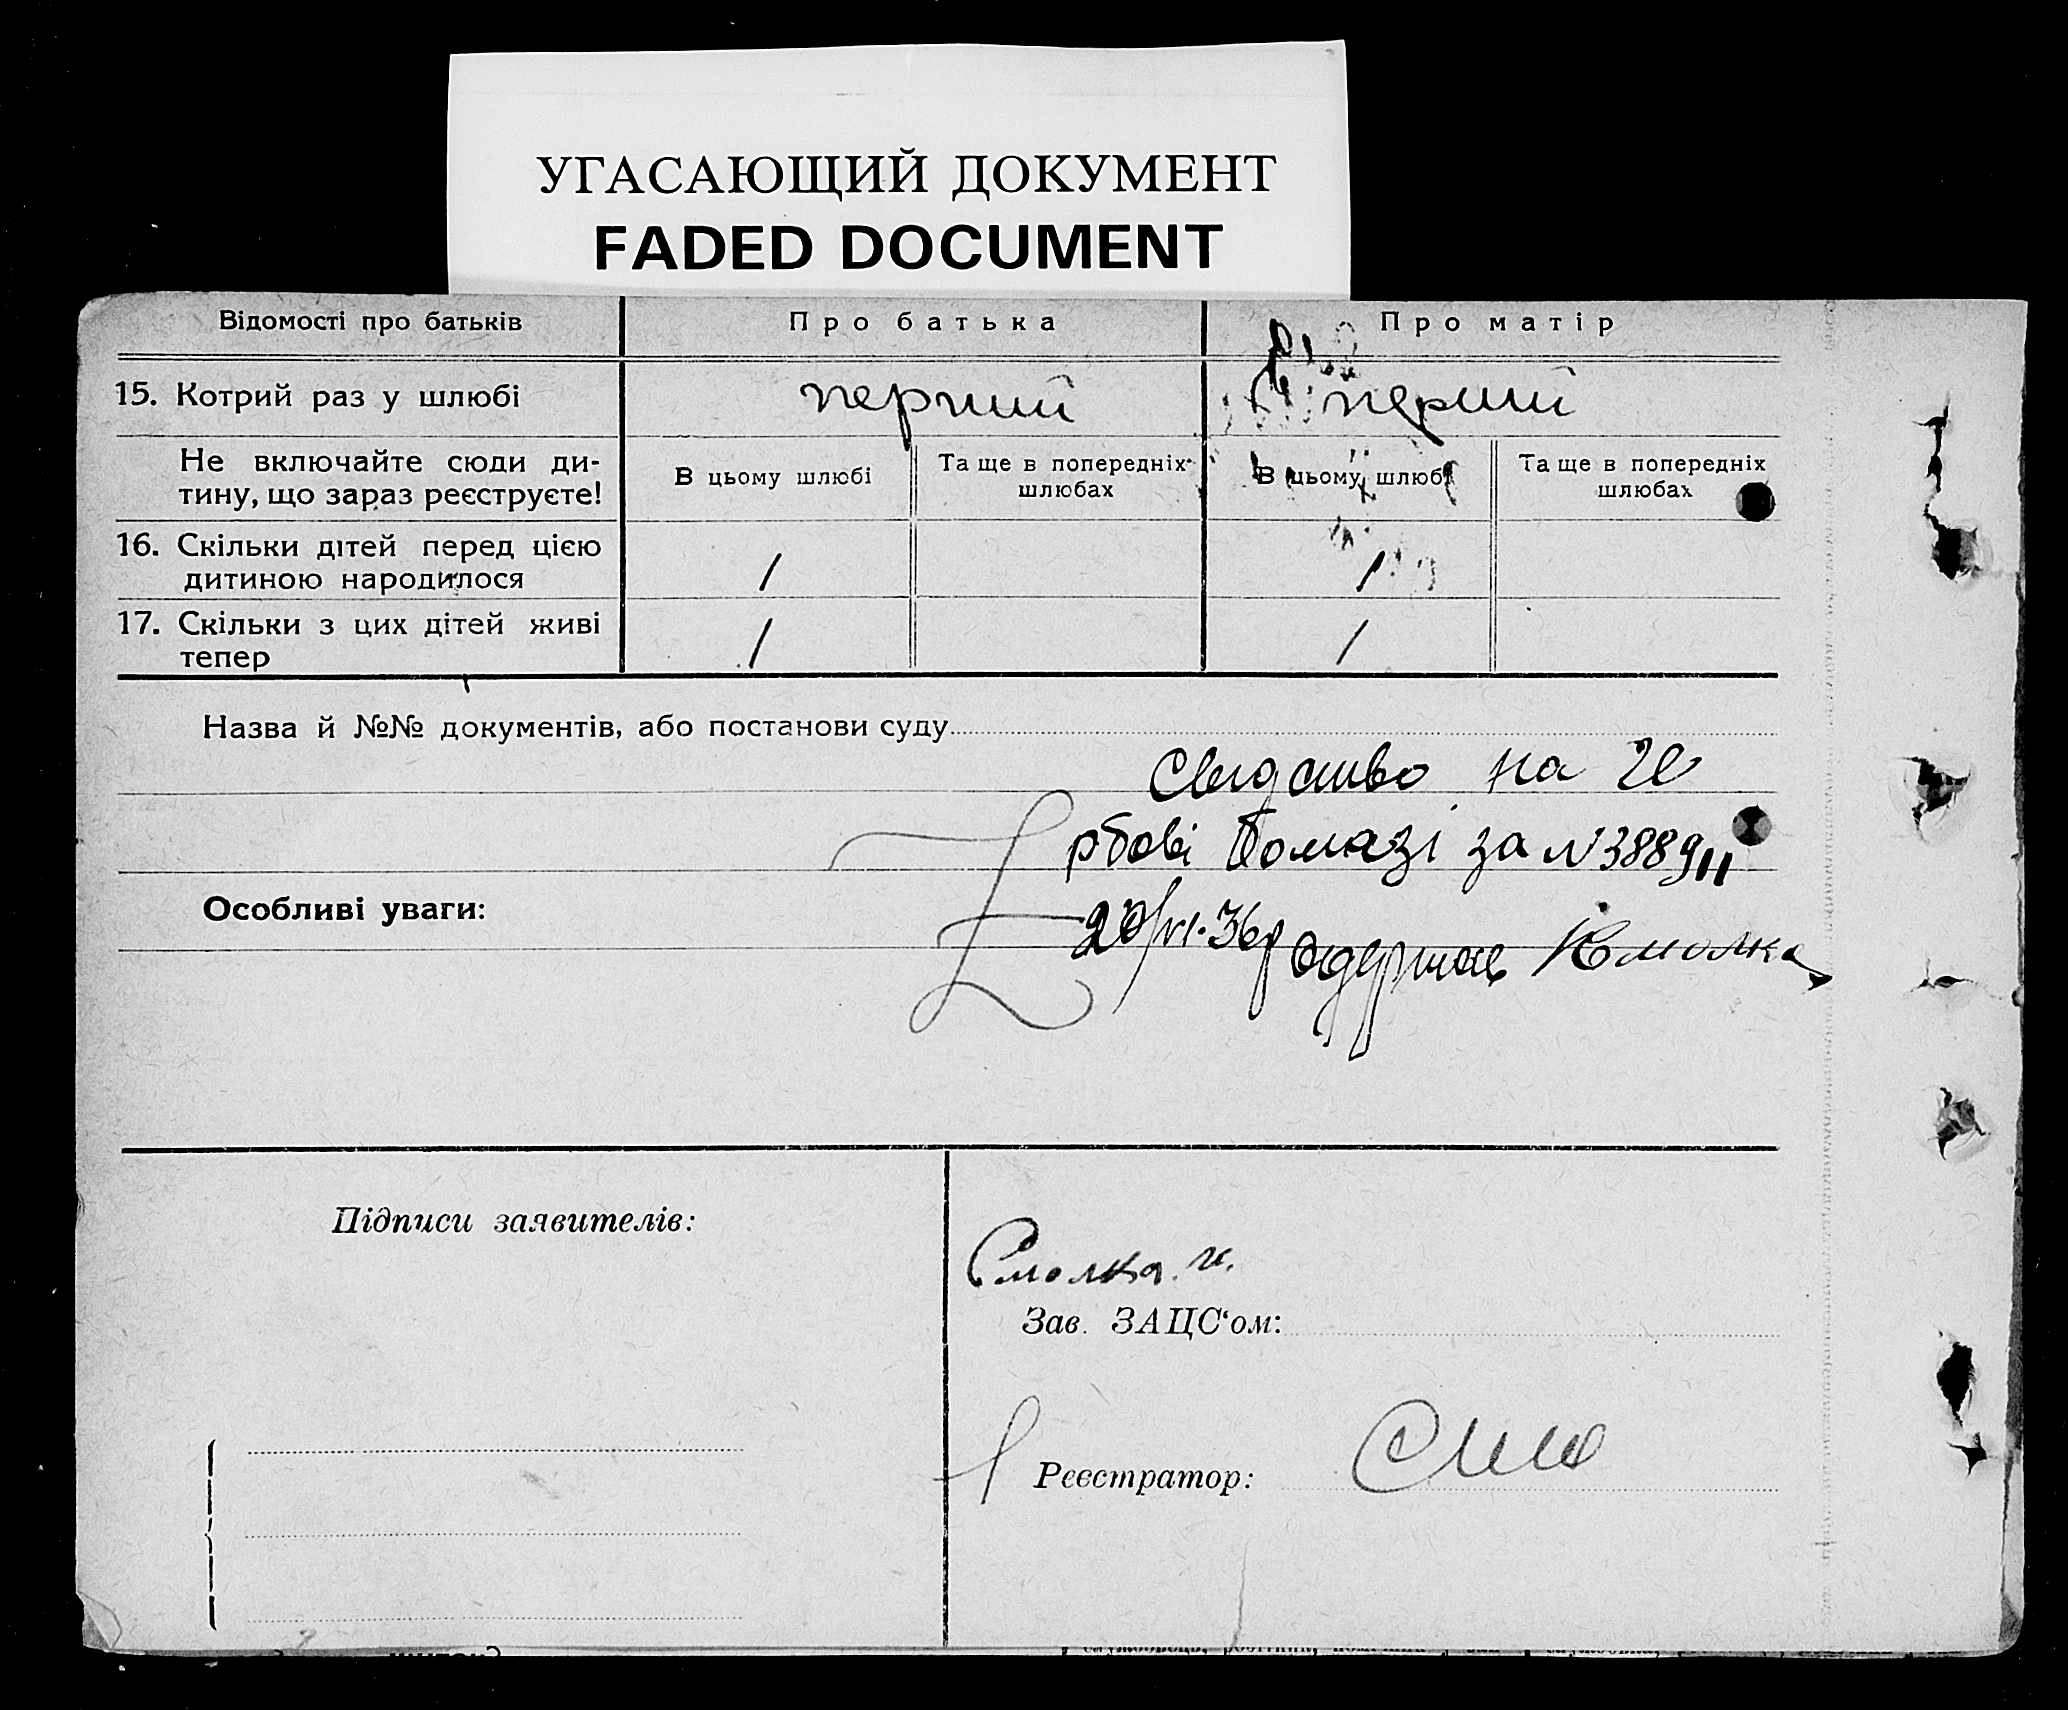 УГАСАЮЩИЙ ДОКУМЕНТ
FADED DOCUMENT
Відомості про батьків Про батька Про матір
15. Котрий раз у шлюбі перший перший
Не включайте сюди ди-
тину, що зараз реєструєте!
В цьому шлюбі
Та ще в попередніх
шлюбах
В цьому шлюбі
Та ще в попередніх
шлюбах
16. Скільки дітей перед цією
дитиною народилося 1 1
17. Скільки з цих дітей живі
тепер 1 1
Назва й №№ документів, або постанови суду
на
за N 3889
Особливі уваги:
/VI-36р одержав Смолка
Підписи заявителів:
Смолка. И.
Зав. ЗАЦС‘ом:
Реєстратор: